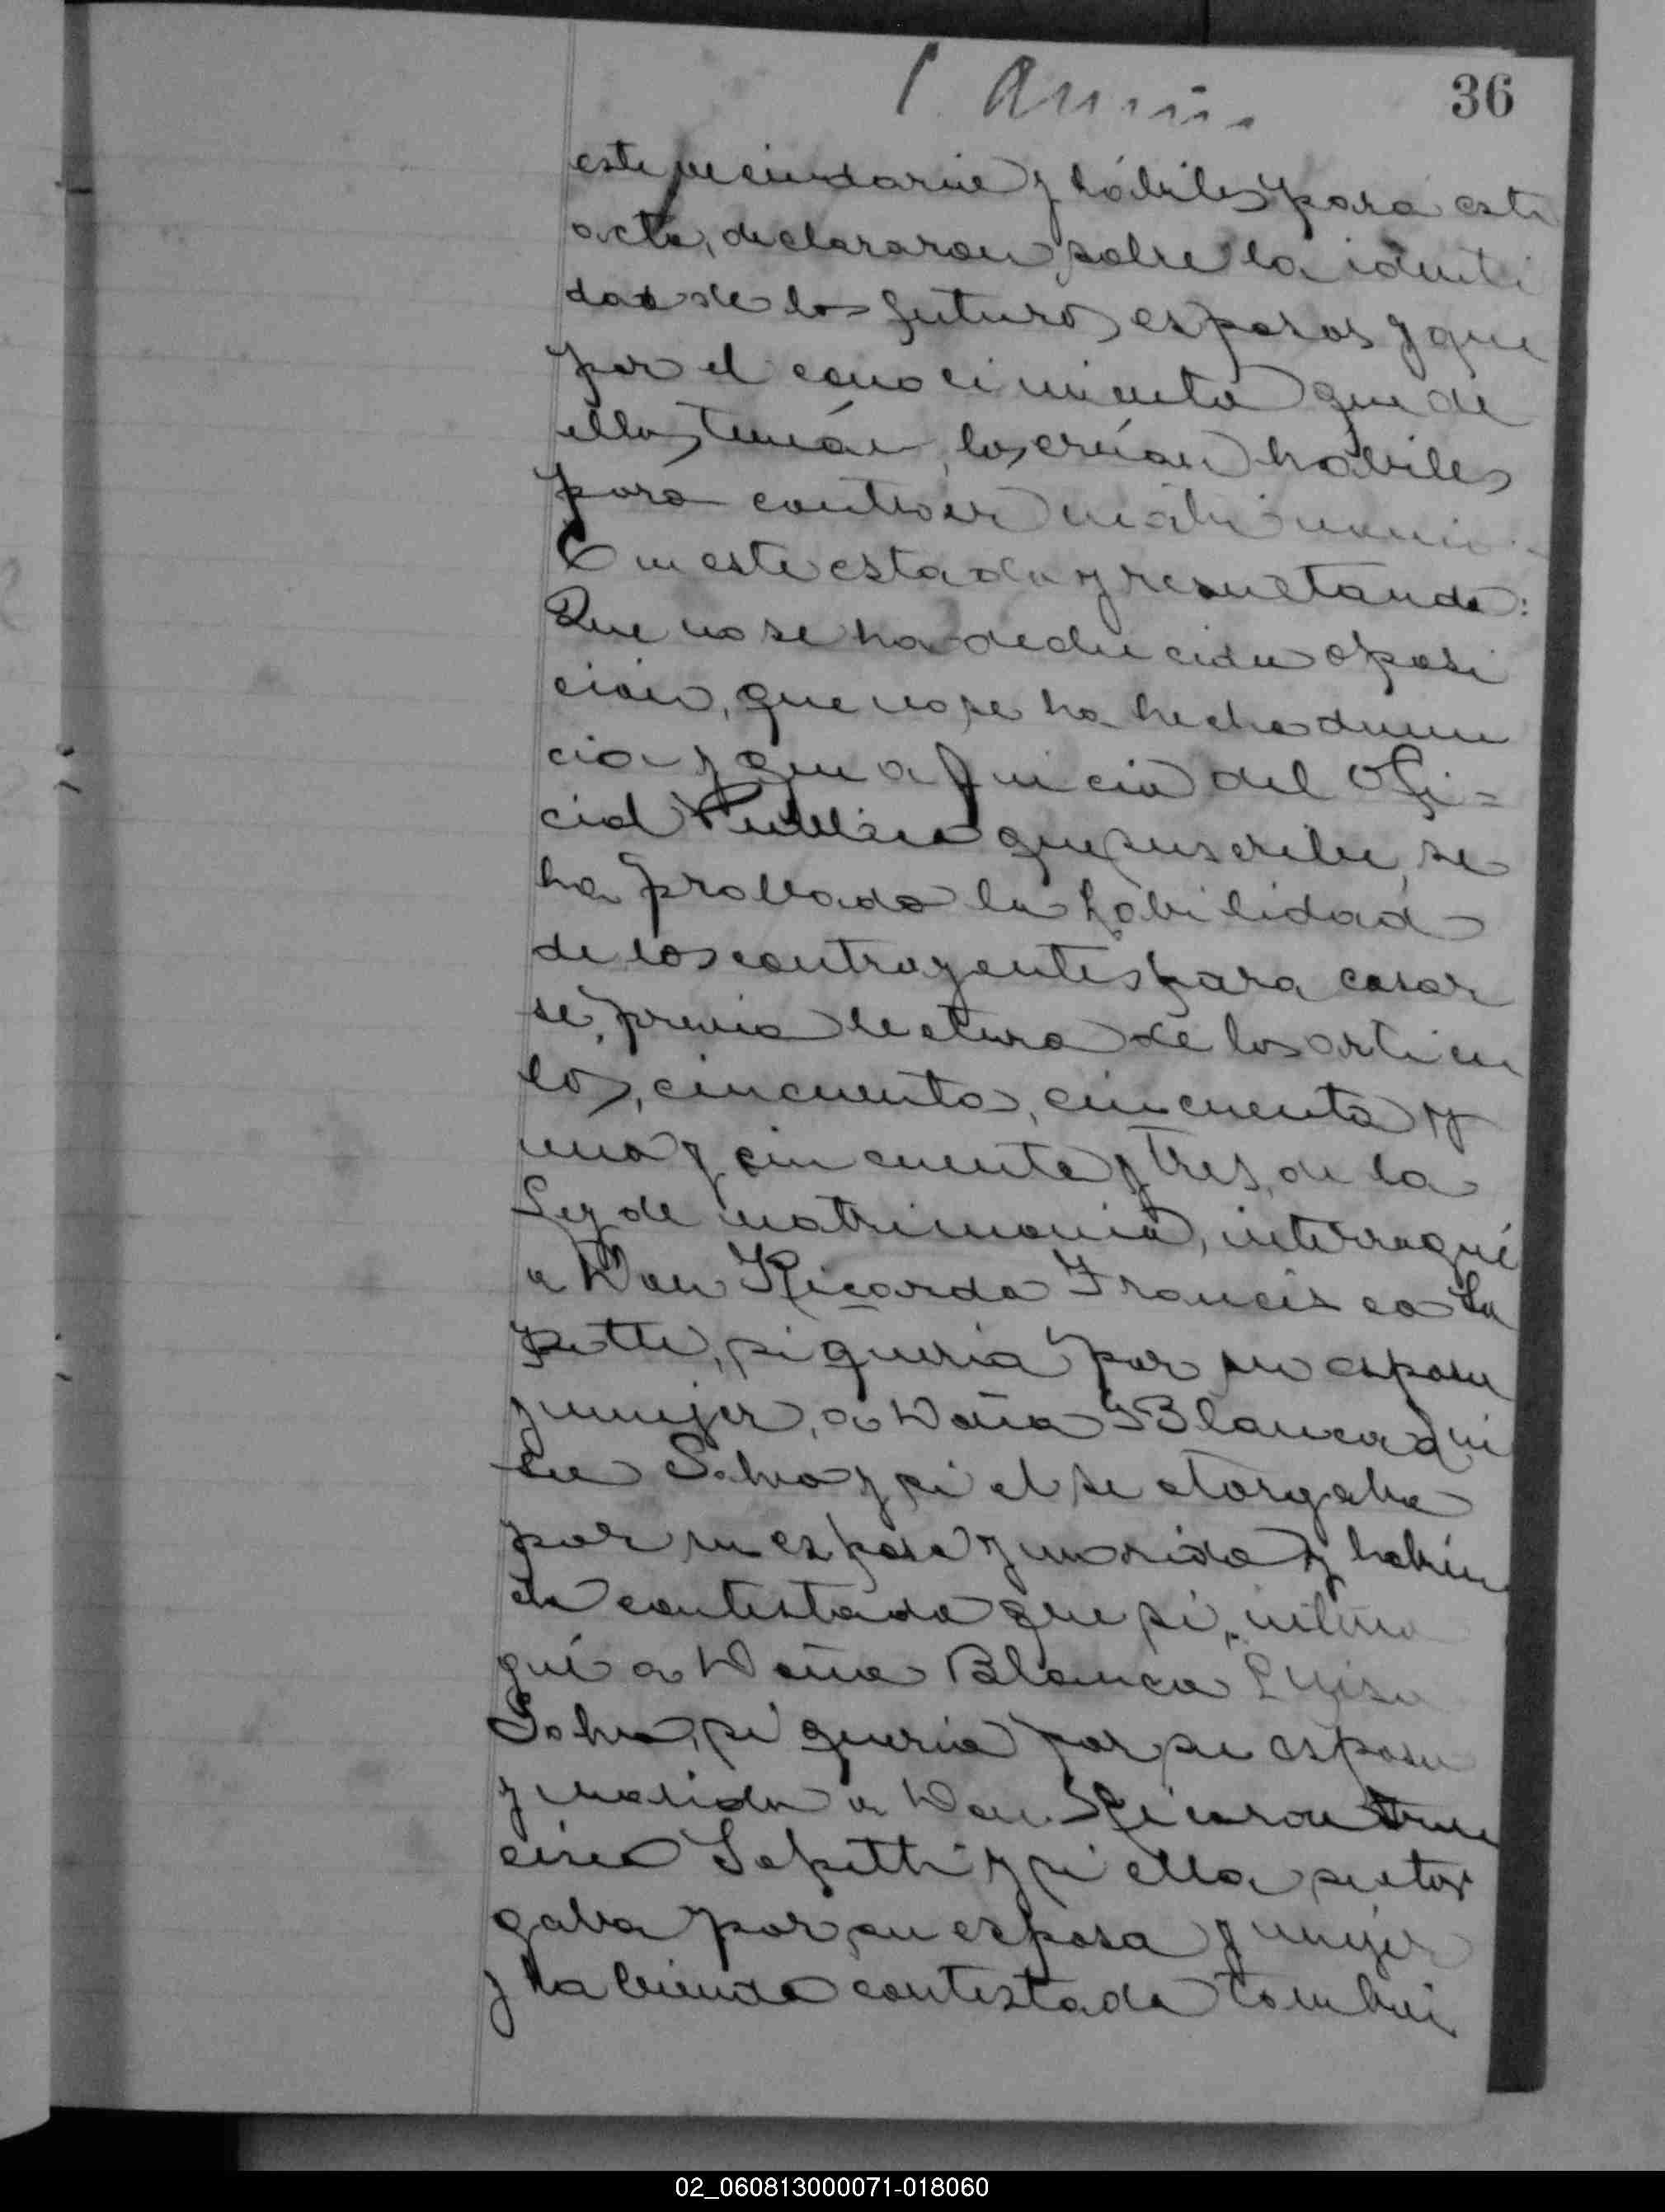 36
este vecindario y hábiles para este
acto, declararon sobre la identi
dad de los futuros esposos y que
por el conocimiento que de
ellos tenían, los creían habiles
para contraer matrimonio.
En este estado y resultando:
Que no se ha deducido oposi
cion, que no se ha hecho denun
cia y que a juicio del Ofi=
cial Publico que suscribe, se
ha probado la habilidad
de los contrayentes para casar
se, previa lectura de los articu
los, cincuenta, cincuenta y
uno y cincuenta y tres, de la
Ley de matrimonio, interrogué
a Don Ricardo Francisco
si queria por su esposa
y mujer, a Doña Blanca Lui
sa y si el se otorgaba
por su esposo y marido y habien
do contestado que si, interro
gué a Doña Blanca Luisa
si queria por su esposo
y marido a Don Ricardo Fran
cisco y si ella se otor
gaba por su esposa y mujer
y habiendo contestado tambien